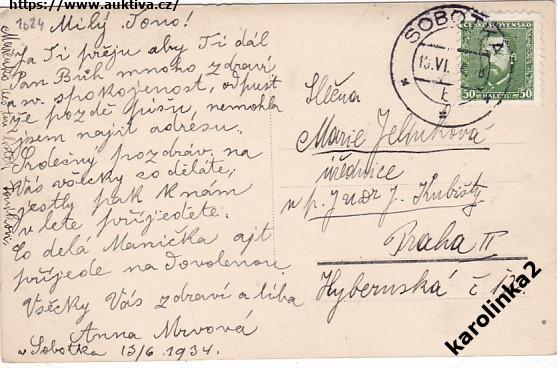 https://www.auktiva.cz/
1624
Milý Tono!
Ja Ti přeju aby Ti dál
Pan Bůh mnoho zdraví
a sv. spokojenost, odpusť
že pozdě píšu, nemohla
jsem najít adresu.
Srdečný pozdrav. na
Vás všecky co děláte,
jestly pak k nám
v lete přijedete.
Co delá Manička ajt
přijede na Dovolenou.
Všecky Vás zdraví a líba
Anna Mrvová
v Sobotka 13/6 1934.
SOBOTKA
13.VI.
ČESKOSLOVENSKO
50 HALÉŘŮ 50
Slečna
Marie Jelínkova
úřednice
u p. Judr J. Kubišty
Praha II
Hybernská č.
karolinka2